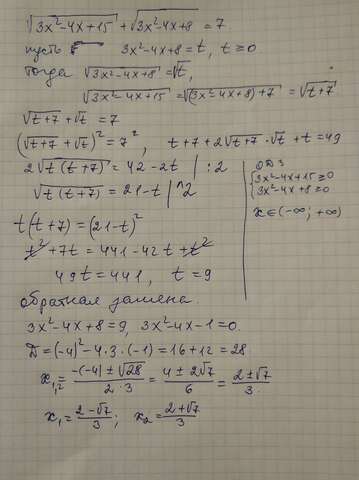 √3x²-4x+15 + √3x²-4x+8 = 7
пусть 3x²-4x+8=t, t≥0
тогда √3x²-4x+8 = √t,
√3x²-4x+15 = √(3x²-4x+8)+7 = √t+7
√t+7 + √t = 7
(√t+7 + √t)² = 7², t+7+2√t+7·√t+t=49
2√t(t+7) = 42-2t | :2
√t(t+7) = 21-t |^2
ОДЗ
{3x²-4x+15≥0
3x²-4x+8≥0
x∈(-∞; +∞)
t(t+7)=(21-t)²
t²+7t=441-42t+t²
49t=441, t=9
обратная замена.
3x²-4x+8=9, 3x²-4x-1=0.
D=(-4)²-4·3·(-1)=16+12=28
x₁,₂= -(-4)±√28 / 2·3 = 4±2√7 / 6 = 2±√7 / 3
x₁= 2-√7 / 3; x₂= 2+√7 / 3